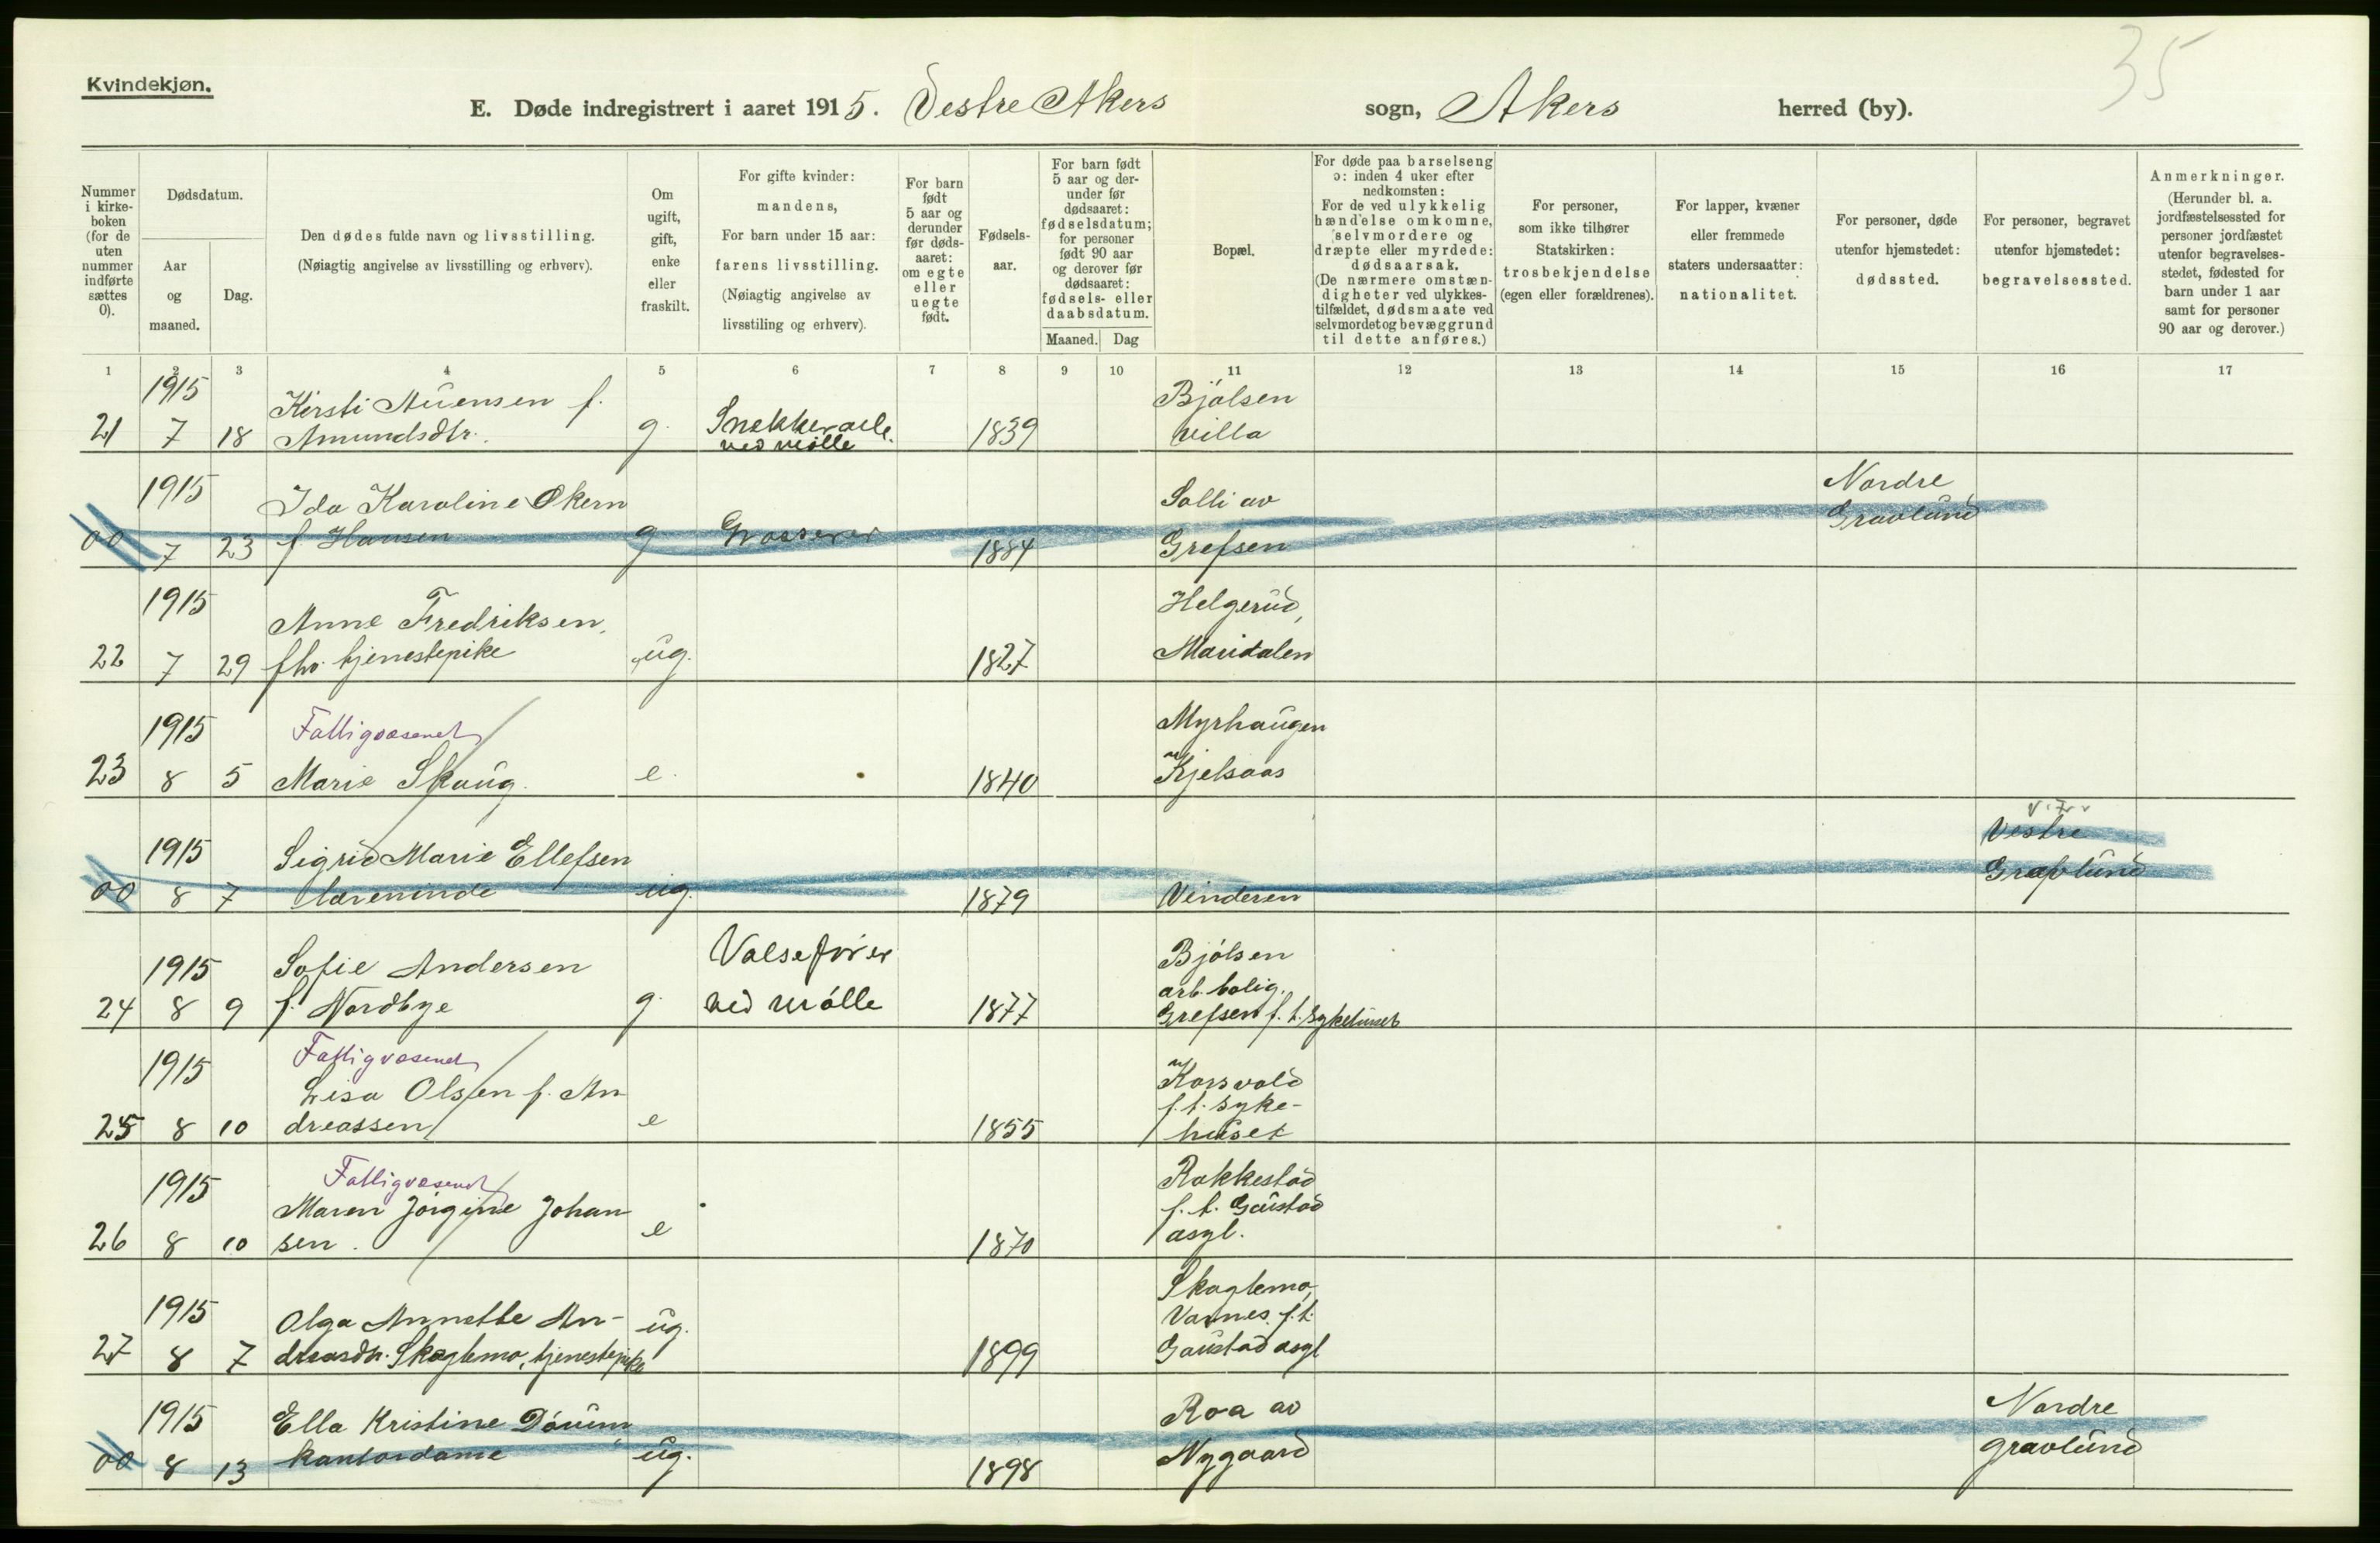 35
Kvindekjøn.
E. Døde indregistrert i aaret 1915. Vestre Akers sogn, Akers herred (by).
Nummer i kirke-boken (for de uten nummer indførte sættes 0).
Dødsdatum.
Aar og maaned.
Dag.
Den dødes fulde navn og livsstilling.
(Nøiagtig angivelse av livsstilling og erhverv).
Om ugift, gift, enke eller fraskilt.
For gifte kvinder: mandens,
For barn under 15 aar: farens livsstilling.
(Nøiagtig angivelse av livsstiling og erhverv).
For barn født 5 aar og derunder før døds-aaret: om egte eller uegte født.
Fødsels-aar.
For barn født 5 aar og der-under før dødsaaret: fødselsdatum; for personer født 90 aar og derover før dødsaaret: fødsels- eller daabsdatum.
Maaned. Dag
Bopæl.
For døde paa barselseng ɔ: inden 4 uker efter nedkomsten:
For de ved ulykkelig hændelse omkomne, selvmordere og dræpte eller myrdede: dødsaarsak.
(De nærmere omstæn-digheter ved ulykkes-tilfældet, dødsmaate ved selvmordet og bevæggrund til dette anføres.)
For personer, som ikke tilhører Statskirken: trosbekjendelse (egen eller forældrenes).
For lapper, kvæner eller fremmede staters undersaatter: nationalitet.
For personer, døde utenfor hjemstedet: dødssted.
For personer, begravet utenfor hjemstedet: begravelsessted.
Anmerkninger.
(Herunder bl. a. jordfæstelsessted for personer jordfæstet utenfor begravelses-stedet, fødested for barn under 1 aar samt for personer 90 aar og derover.)
1 2 3 4 5 6 7 8 9 10 11 12 13 14 15 16 17
1915 Kirsti Auensen f. Bjølsen
21 7 18 Amundsdtr. g. Snekkerarb. 1839 villa
ved mølle
1915 Ida Karoline Økern Solli av Nordre
00 7 23 f. Hansen g Grosserer 1884 Grefsen Gravlund
1915 Anne Fredriksen, Helgerud,
22 7 29 fhv. tjenestepike ug. 1827 Maridalen
1915 Fattigvæsenet Myrhaugen
23 8 5 Marie Skaug. e. 1840 Kjelsaas
Vestre
1915 Sigrid Marie Ellefsen Gravlund
00 8 7 lærerinde ug. 1879 Vinderen
1915 Sofie Andersen Valsefører Bjølsen
arb. bolig.
24 8 9 f. Nordbye g. ved mølle 1877 Grefsen f. t. sykehuset
1915 Fattigvæsenet Korsvold
Lisa Olsen f. An f. t. syke-
25 8 10 dreassen e 1855 huset
Fattigvæsenet Rakkestad
1915 Maren Jørgine Johan f. t. Gaustad
26 8 10 sen. e 1870 asyl.
Skaglemo,
1915 Olga Annette An- ug. Vannes. f. t.
27 8 7 dreasdtr. Skaglemo, tjenestepike 1899 Gaustad asyl
1915 Ella Kristine Dørum Roa av Nordre
00 8 13 kontordame ug. 1898 Nygaard gravlund